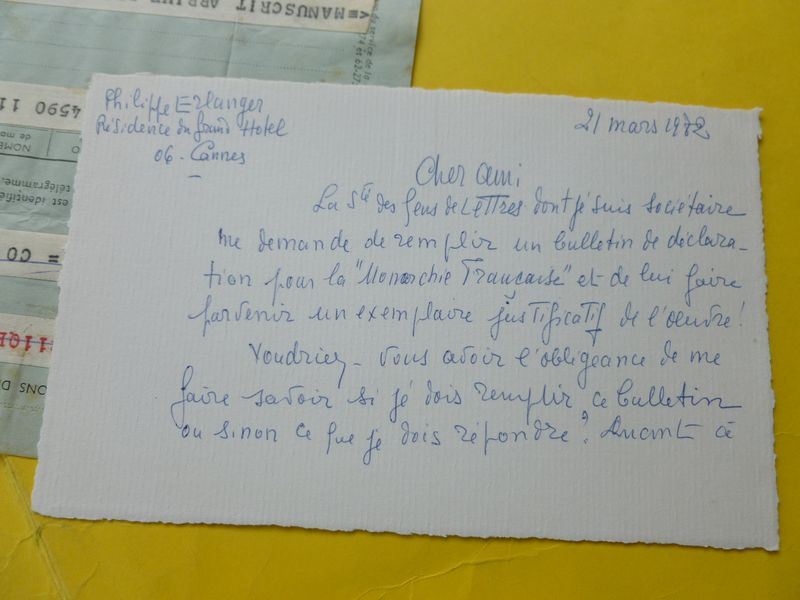 MANUSCRIT ARRIVE
du service de la
74 et 62-27
4590 11
NOMB
de mo
est identifié
télégramme.
= CO
ONS DE
Philippe Erlanger
Résidence du Grand Hotel
06 - Cannes
21 mars 1972
Cher ami
La Sté des Gens de Lettres dont je suis sociétaire
me demande de remplir un bulletin de déclara-
tion pour la "Monarchie Française" et de lui faire
parvenir un exemplaire justificatif de l'oeuvre!
Voudriez-vous avoir l'obligeance de me
faire savoir si je dois remplir ce bulletin
ou sinon ce que je dois répondre? Quant à